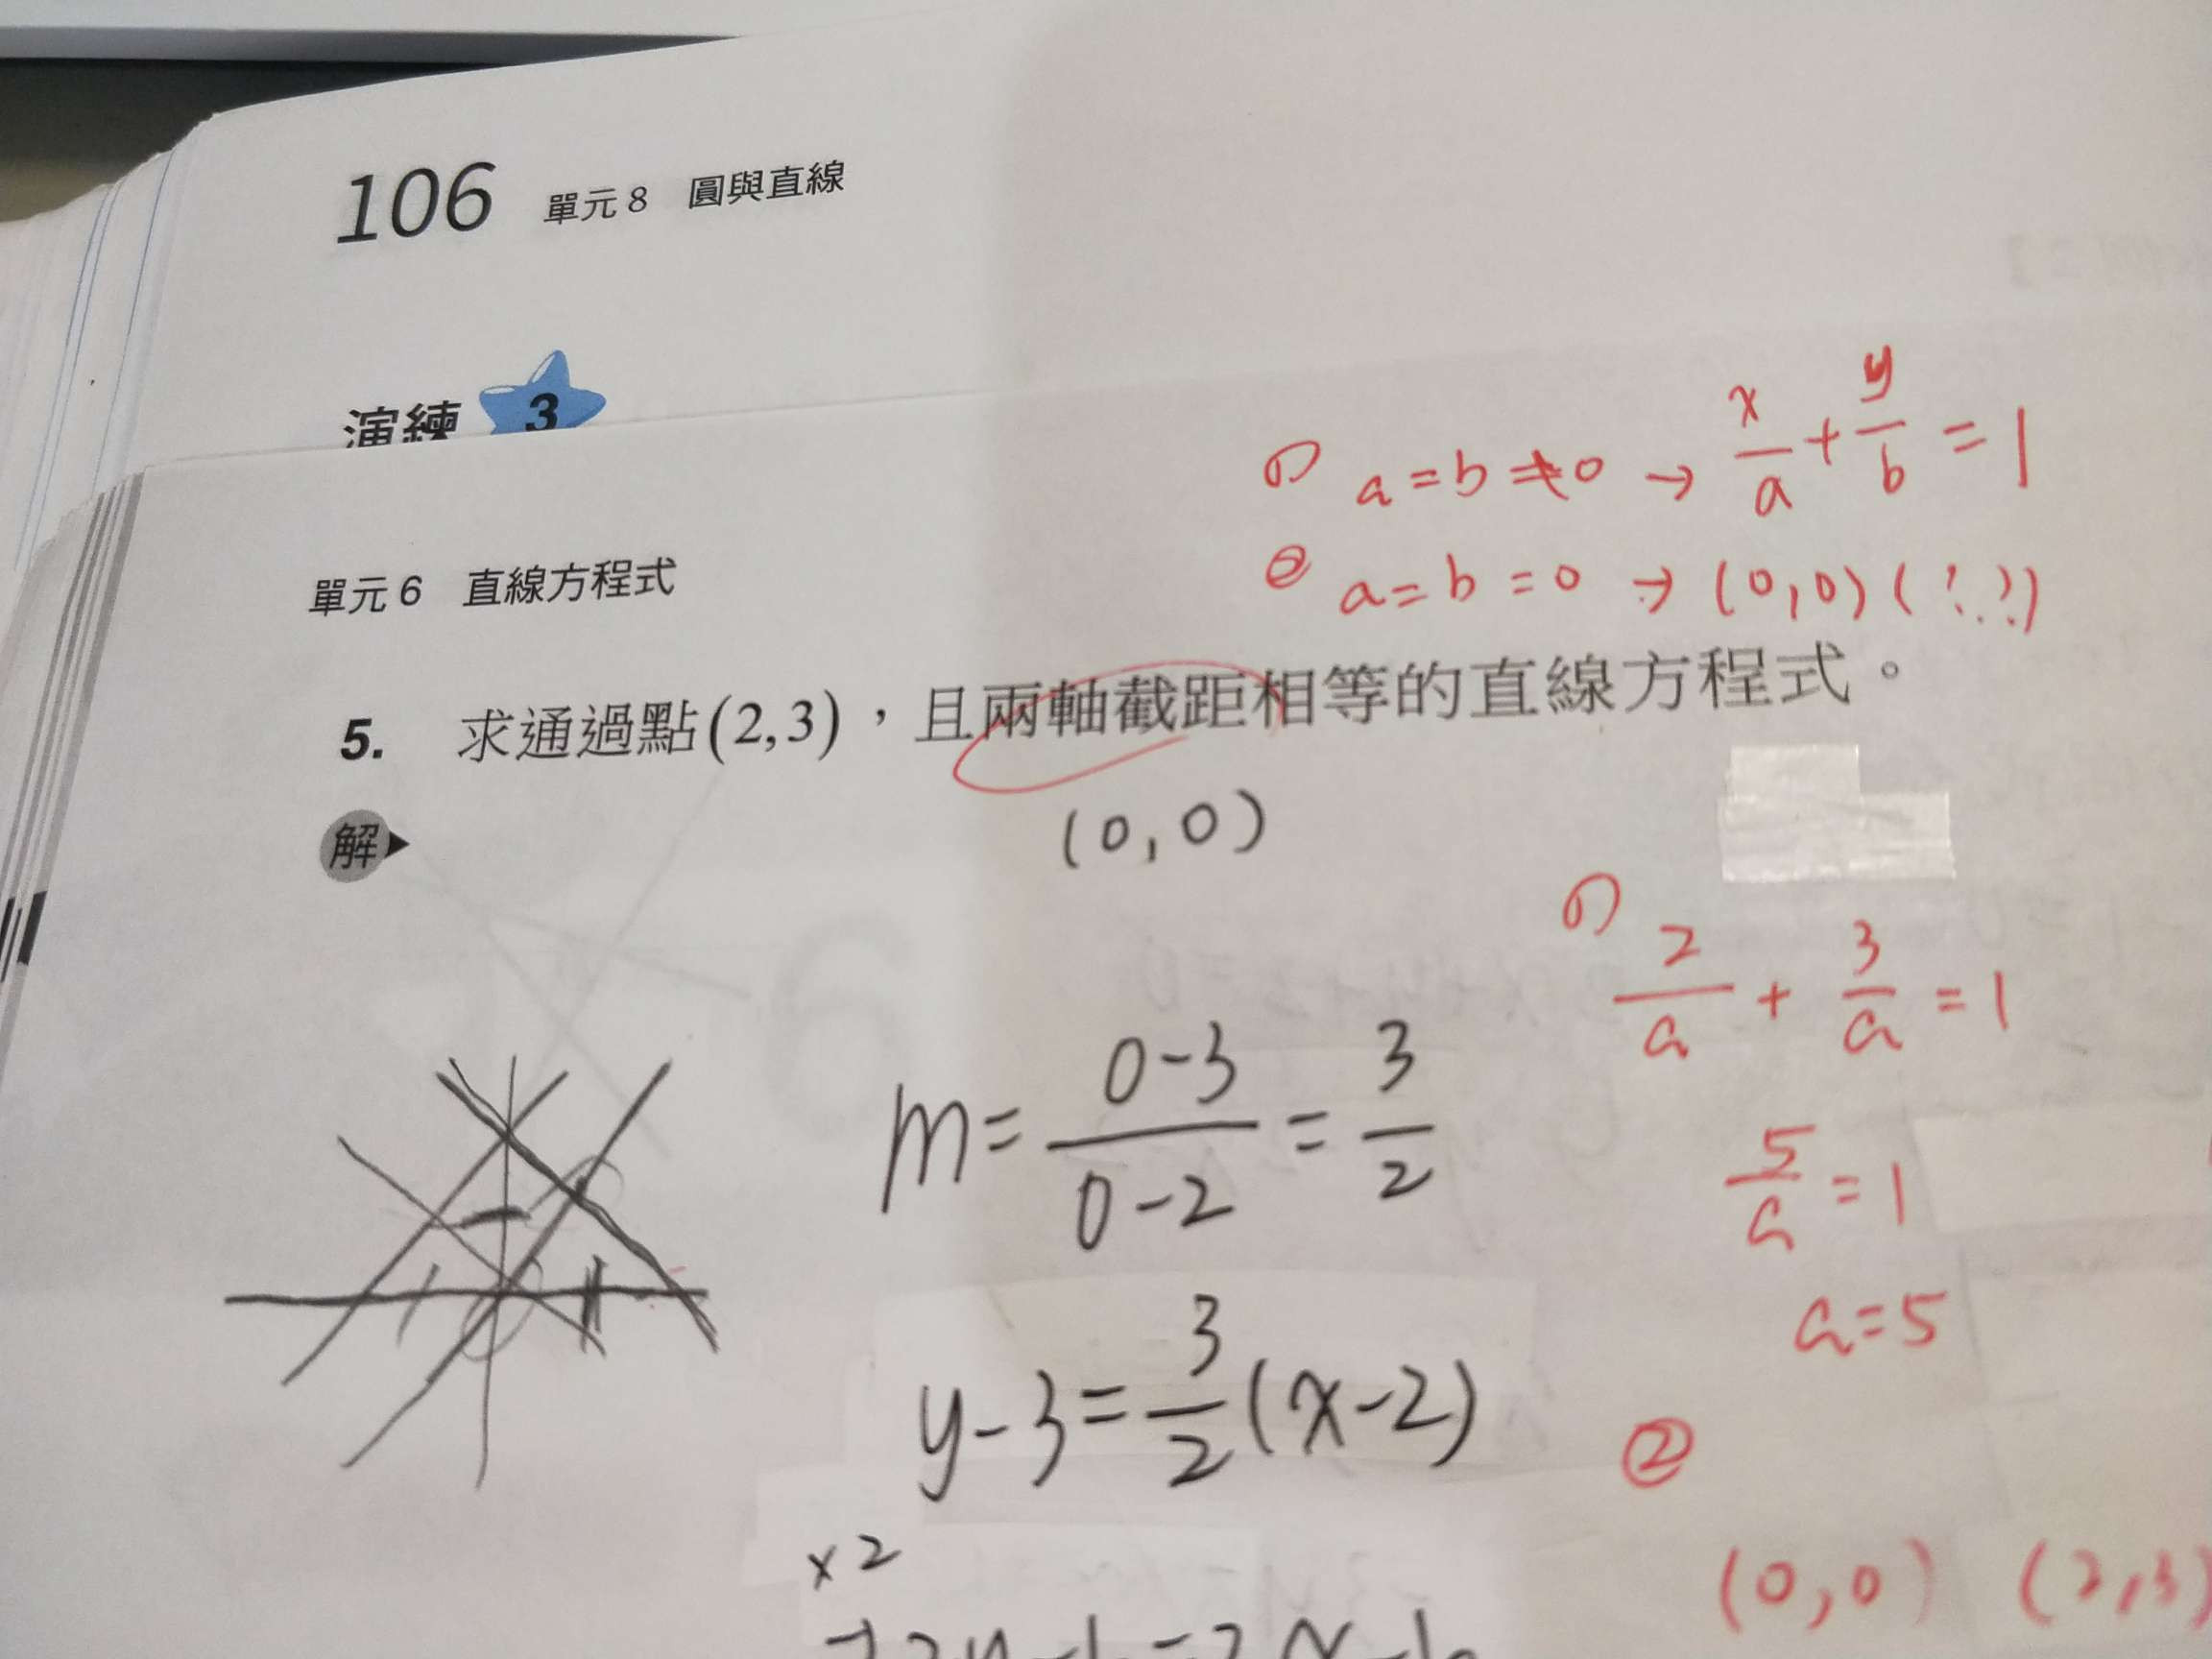 106 單元 8 圓與直線
演練 3
① a = b ≠ 0 → x/a + y/b = 1
② a = b = 0 → (0,0) (!..?)
單元 6 直線方程式
5. 求通過點(2,3)，且兩軸截距相等的直線方程式。
(0,0)
解
① 2/a + 3/a = 1
m = 0-3/0-2 = 3/2
5/a = 1
a = 5
y-3 = 3/2 (x-2)
②
×2
(0,0) (2,3)